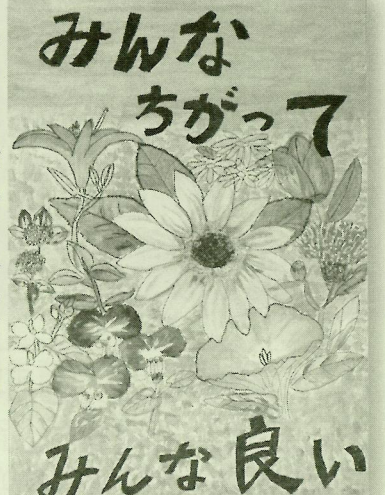 みんな
ちがって
みんな良い